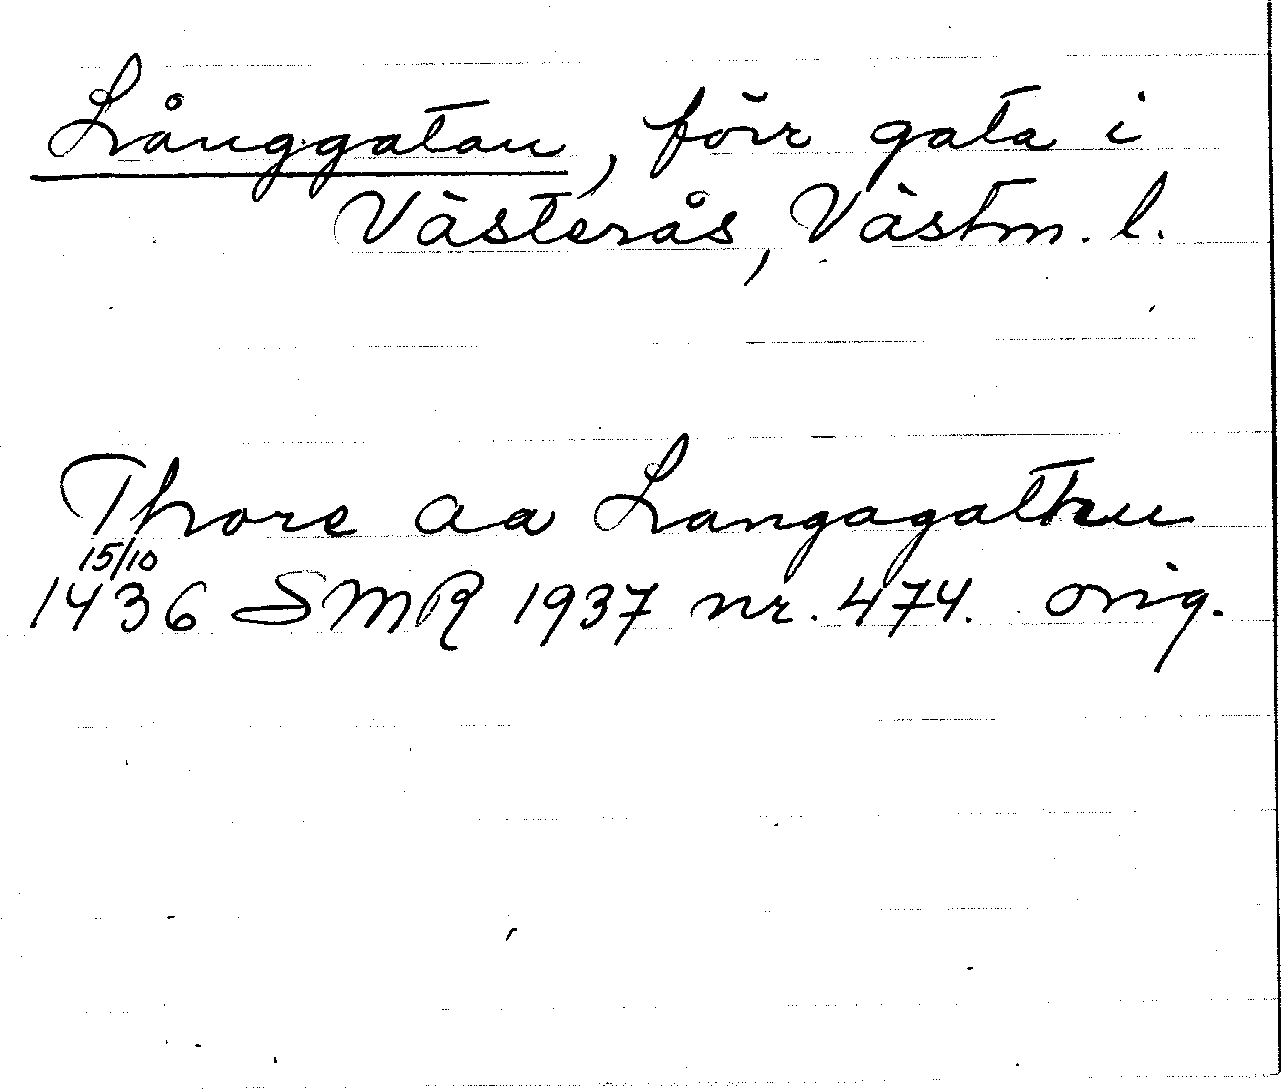 Långgatan, förr gata i
Västerås, Västm. l.
Thore aa Langagathen
15/10
1436 SMR 1937 nr. 474. orig.